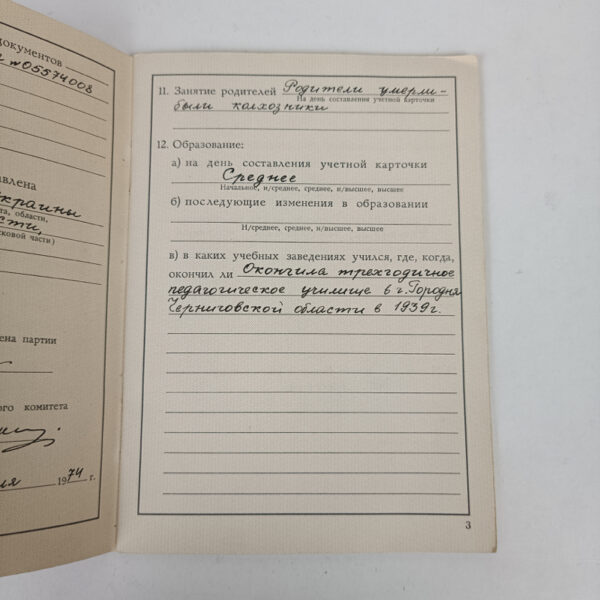 документов
№05574008
авлена
краины
та, области,
сти,
сковой части)
ена партии
ого комитета
ля 1974 г.
11. Занятие родителей Родители умерли-
На день составления учетной карточки
были колхозники
12. Образование:
а) на день составления учетной карточки
Среднее
Начальное, н/среднее, среднее, н/высшее, высшее
б) последующие изменения в образовании
Н/среднее, среднее, н/высшее, высшее
в) в каких учебных заведениях учился, где, когда,
окончил ли Окончила трехгодичное
педагогическое училище в г. Городня
Черниговской области в 1939 г.
3